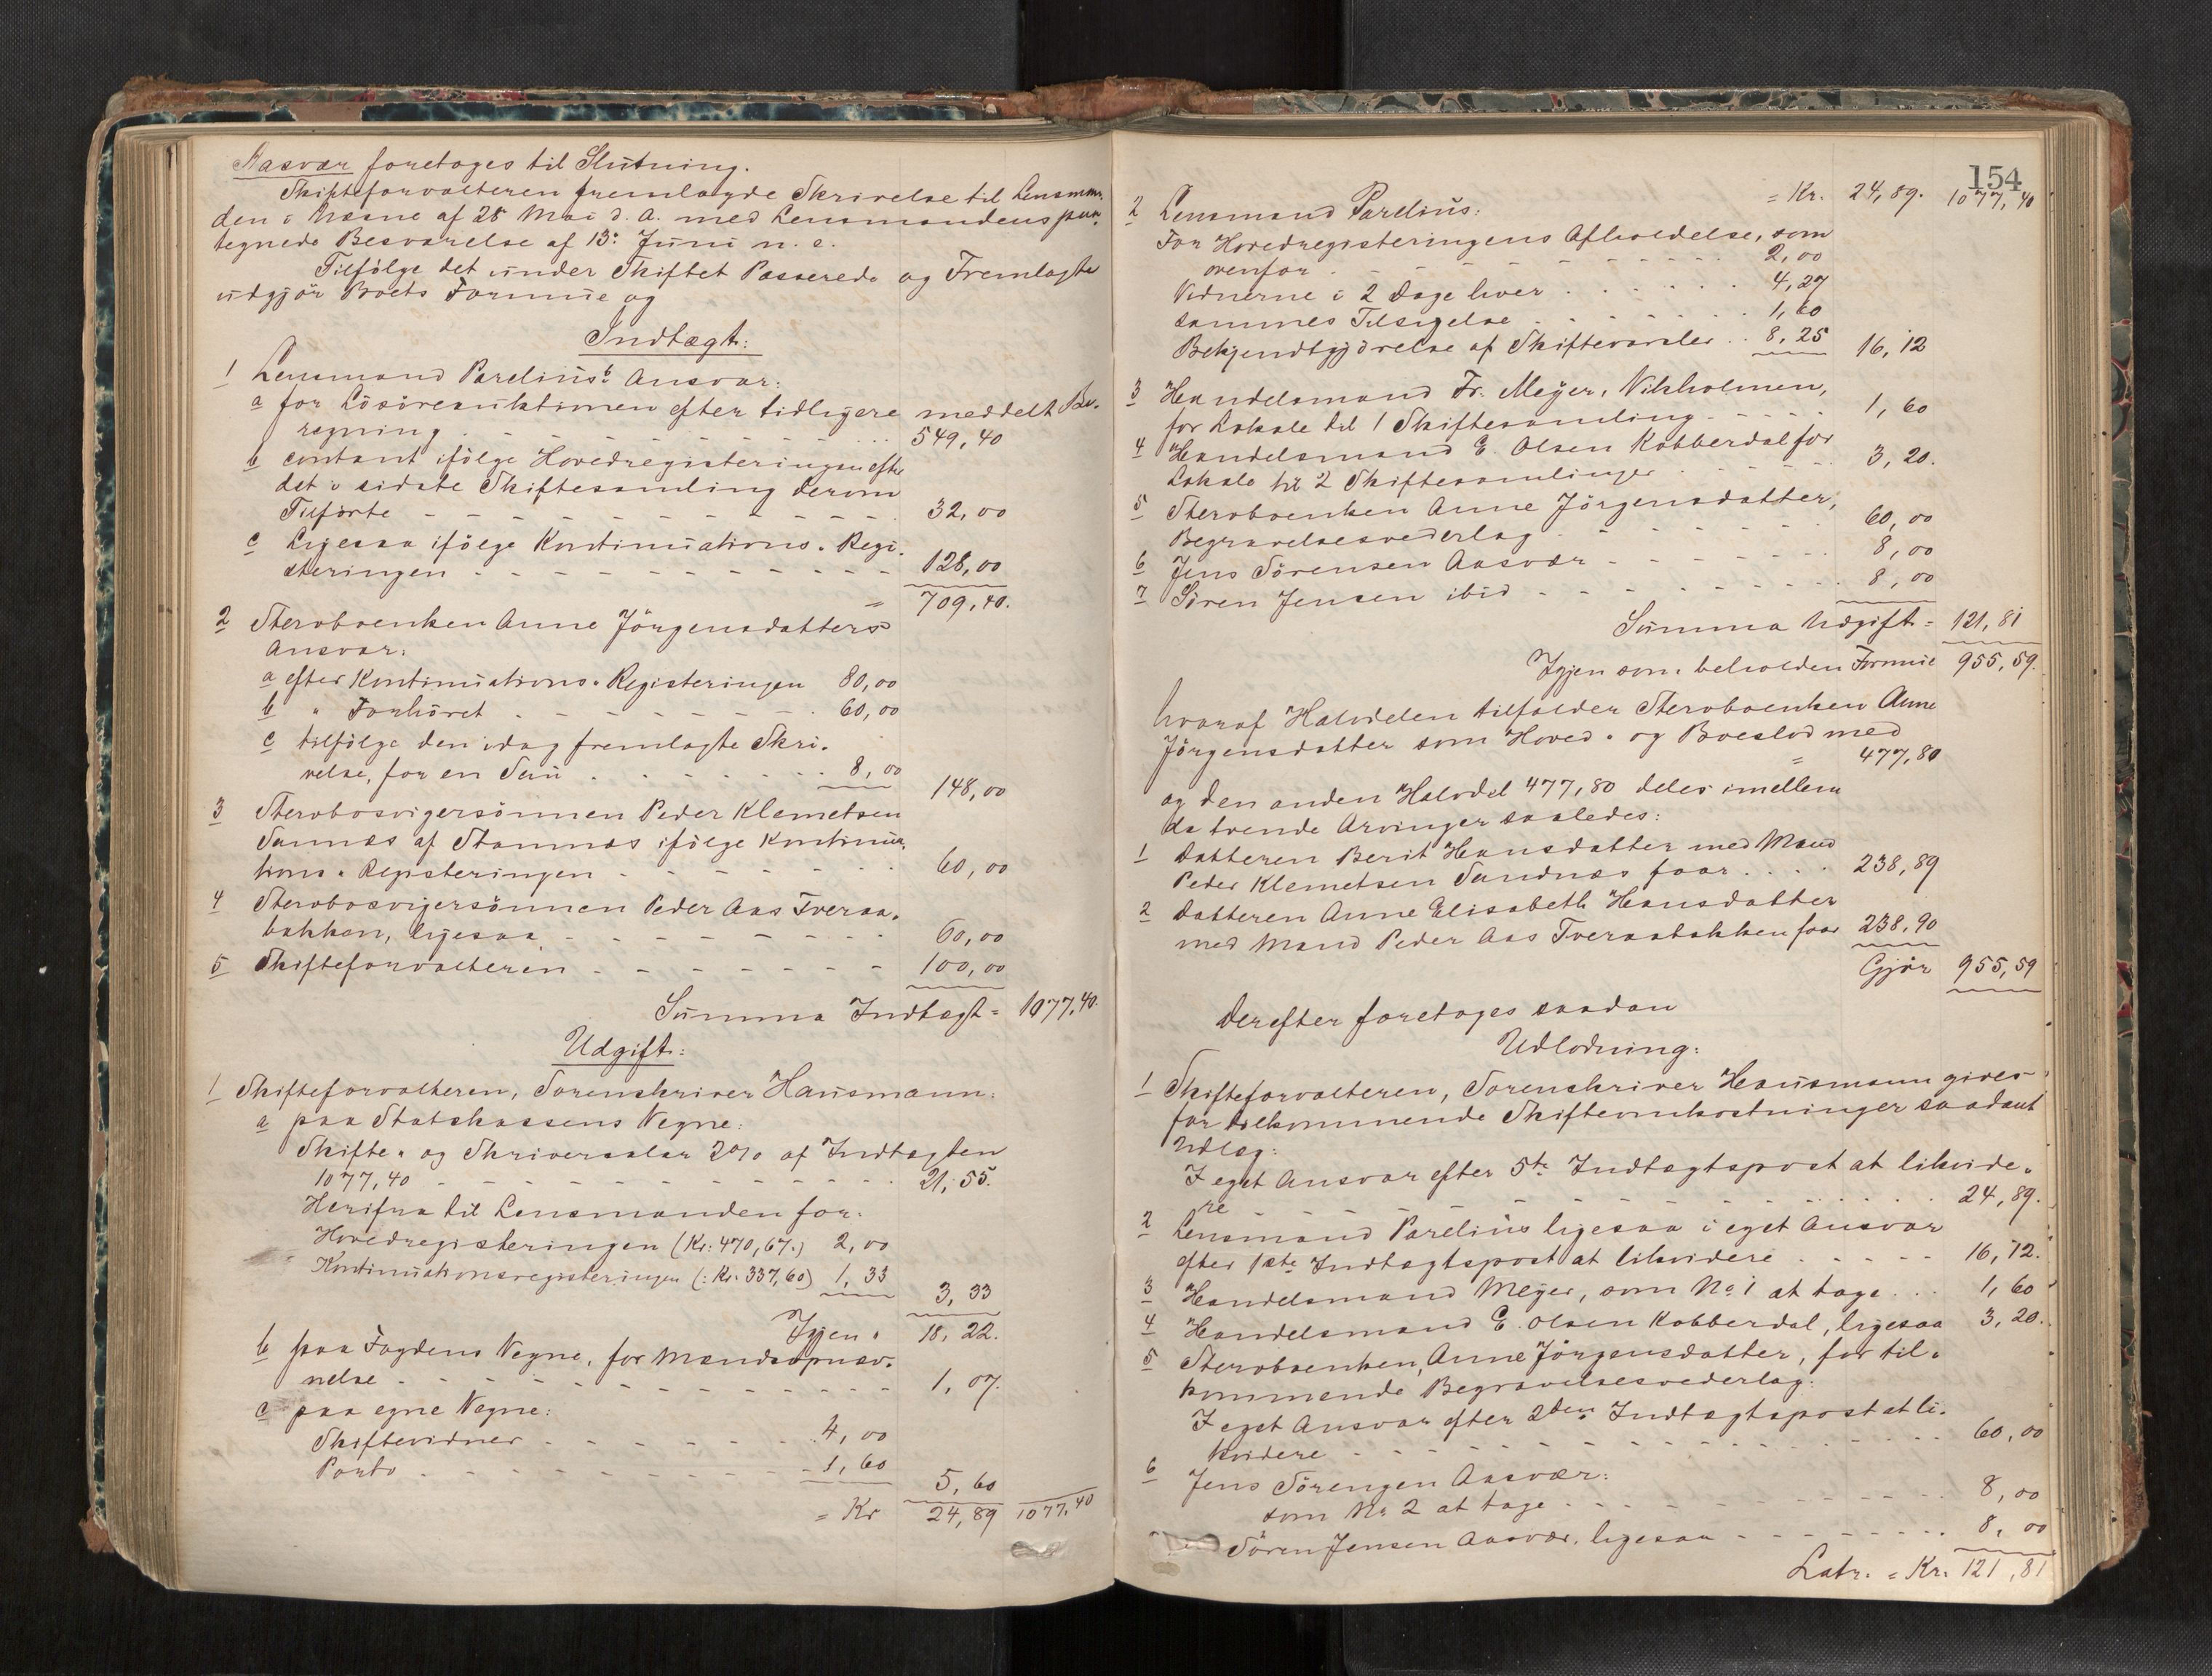 Aasvær foretages til Slutning.
Skifteforvalteren fremlagde Skrivelse til Lensman-
den i Næsne af 28 Mai d. A. med Lensmandens paa-
tegnede Besvarelse af 13: Juni n. e.
Tilfølge det under Skiftet Passerede og Fremlagte
udgjør Boets Formue og
Indtægt:
1 Lensmand Parelius's Ansvar:
a for Løsøreauktionen efter tidligere meddelt Be-
regning 549,40
b contant ifølge Hovedregisteringen efter
det i sidste Skiftesamling derom
Tilførte 32,00
c Ligesaa ifølge Kontinuations-Regi-
steringen 128,00
= 709,40.
2 Sterboenken Anne Jörgensdatters
Ansvar:
a efter Kontinuations-Registeringen 80,00
b " Forhöret 60,00
c tilfölge den idag fremlagte Skri-
velse, for en Sau 8,00
148,00
3 Sterbosvigersönnen Peder Klemetsen
Sannæs af Stamnæs ifölge Kontinua-
tions-Registeringen 60,00
4 Sterbosvigersönnen Peder Aas Tveraa-
bakken, ligesaa 60,00
5 Skifteforvalteren 100,00
Summa Indtægt = 1077,40.
Udgift:
1 Skifteforvalteren, Sorenskriver Hausmann:
a paa Statskassens Vegne:
Skifte- og Skriversalær 2% af Indtægten
1077,40 21,55.
Herifra til Lensmanden for:
Hovedregisteringen (Kr: 470,67.) 2,00
Kontinuationsregisteringen (: Kr. 337,60) 1,33
3,33
Igjen = 18,22.
b paa Fogdens Vegne, for Mandsopnæv-
nelse 1,07.
c paa egne Vegne:
Skiftevidner 4,00
Porto 1,60
5,60
= Kr 24,89 1077,40
154
= Kr. 24,89. 1077,40
2 Lensmand Parelius:
For Hovedregisteringens Afholdelse, som
ovenfor 2,00
Vidnerne i 2 Dage hver 4,27
Sammes Tilsigelse 1,60
Bekjendtgjörelse af Skiftevarsler 8,25 16,12
3 Handelsmand Fr. Meyer, Vikholmen,
for Lokale til 1 Skiftesamling 1,60
4 Handelsmand E. Olsen Kobberdal for
Lokale til 2 Skiftesamlinger 3,20.
5 Sterboenken Anne Jörgensdatter,
Begravelsesvederlag 60,00
6 Jens Sörensen Aasvær 8,00
7 Sören Jensen ibid 8,00
Summa Udgift = 121,81
Igjen som beholden Formue 955,59.
hvoraf Halvdelen tilfalder Sterboenken Anne
Jörgensdatter som Hoved- og Boeslod med
= 477,80
og den anden Halvdel 477,80 deles imellem
de tvende Arvinger saaledes:
1 Datteren Berit Hansdatter med Mand
Peder Klemetsen Sandnæs faar 238,89
2 Datteren Anne Elisabeth Hansdatter
med Mand Peder Aas Tveraabakken faar 238,90
Gjör 955,59
Derefter foretages saadan
Udlodning:
1 Skifteforvalteren, Sorenskriver Hausmann gives
for tilkommende Skifteomkostninger saadant
Udlæg:
I eget Ansvar efter 5te Indtægtspost at likvide-
re 24,89.
2 Lensmand Parelius ligesaa i eget Ansvar
efter 1ste Indtægtspost at likvidere 16,12.
3 Handelsmand Meyer, som No 1 at tage 1,60
4 Handelsmand E. Olsen Kobberdal, ligesaa 3,20.
5 Sterboenken, Anne Jörgensdatter, for til-
kommende Begravelsesvederlag:
I eget Ansvar efter 2den Indtægtspost at li-
kvidere 60,00
6 Jens Sörensen Aasvær:
som No 2 at tage 8,00
Sören Jensen Aasvær, ligesaa 8,00
Latr. = Kr. 121,81